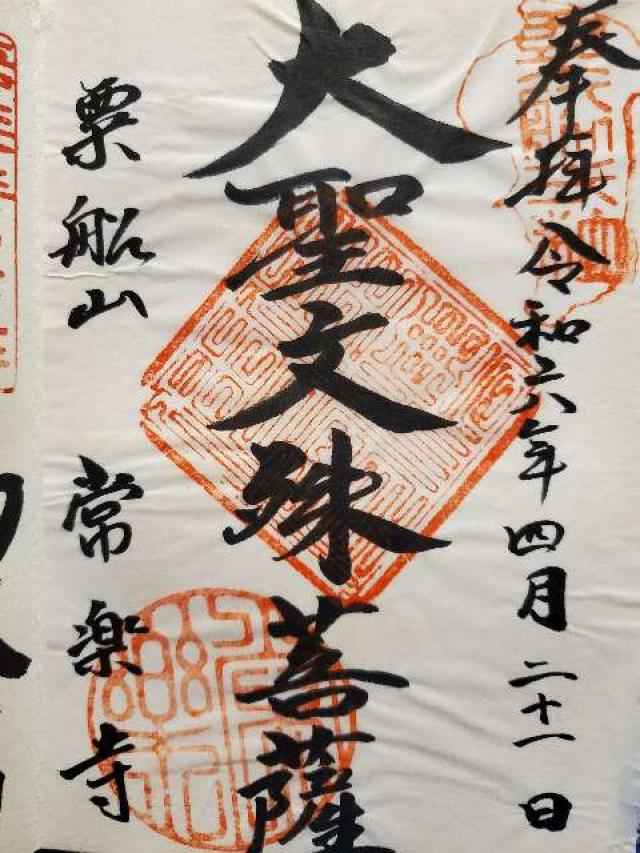 奉拝 令和六年四月二十一日
大聖文殊菩薩
粟船山 常楽寺